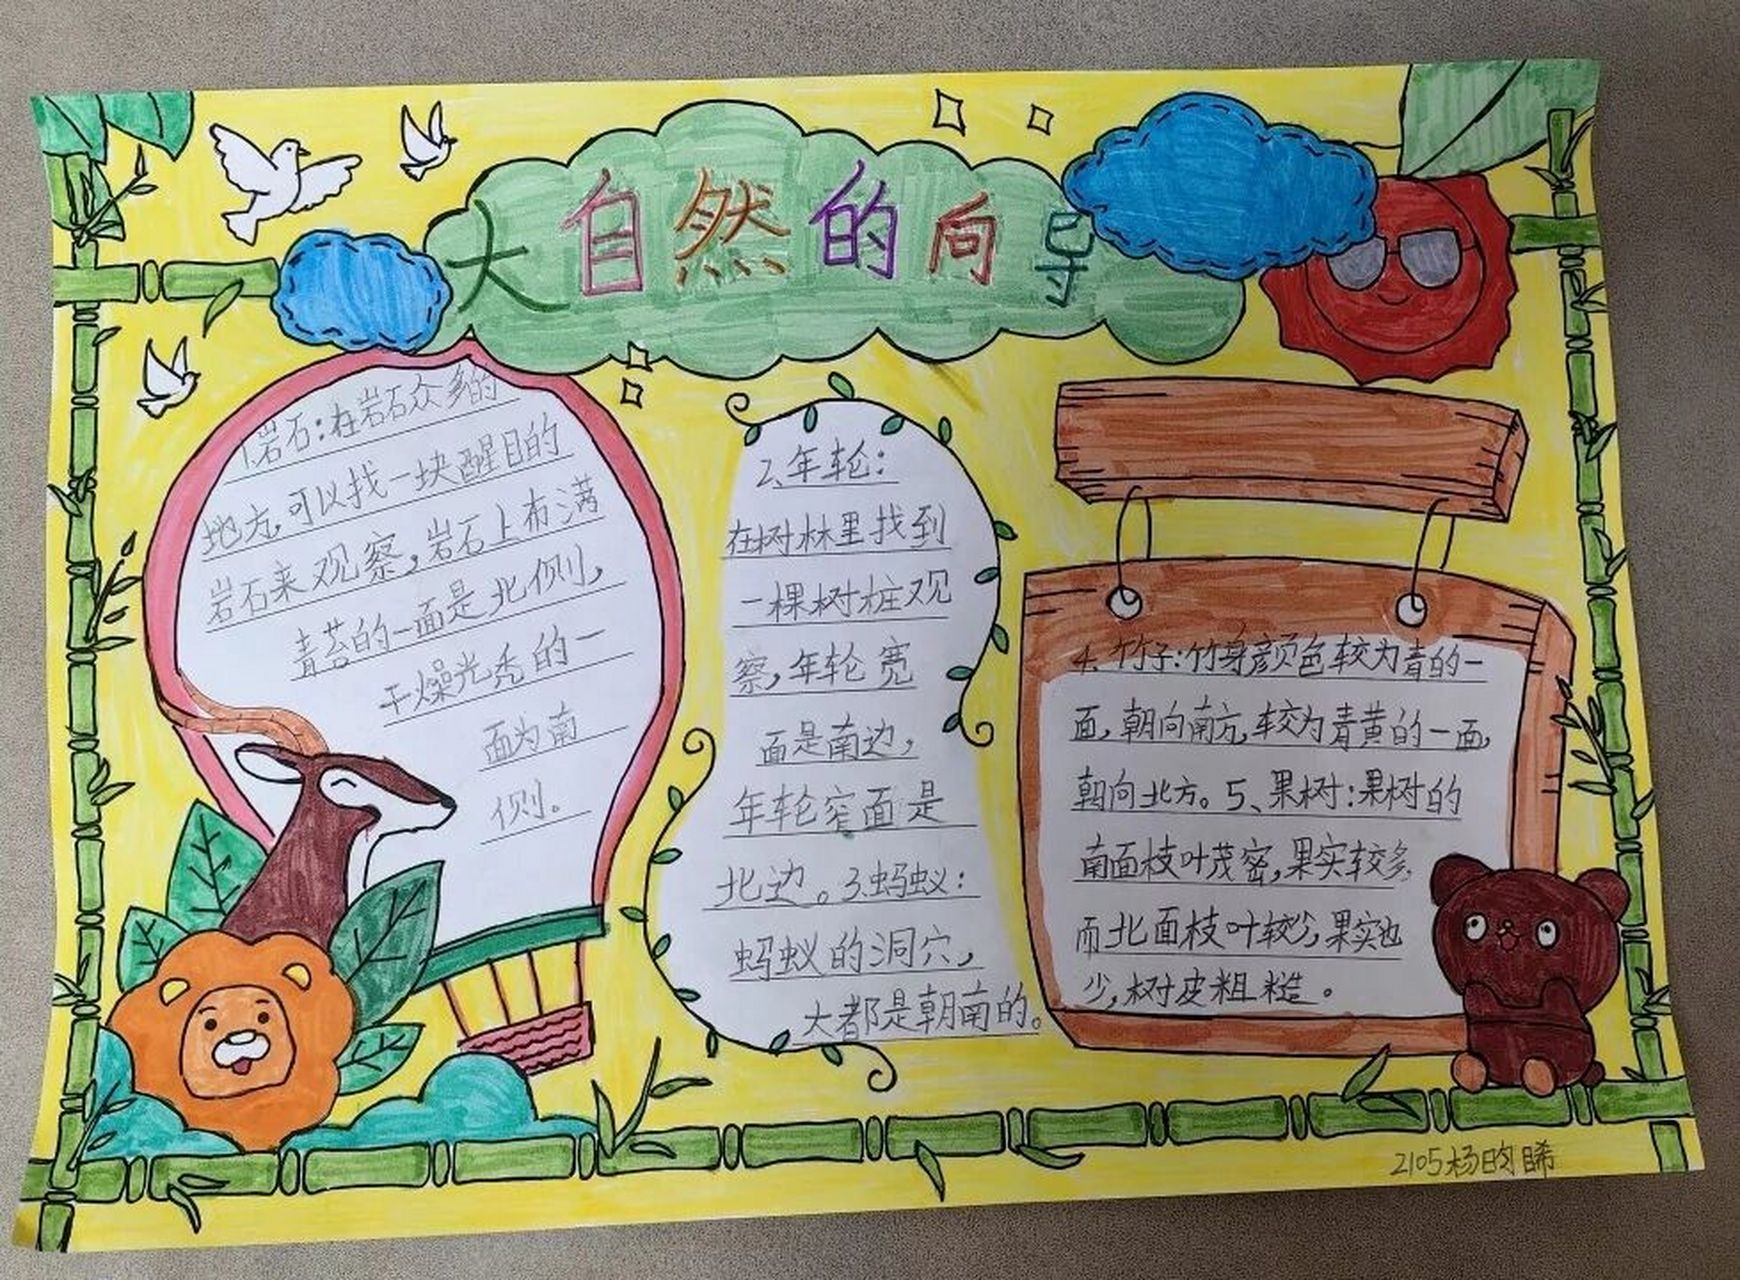 大自然的向导
1.岩石:在岩石众多的
地方,可以找一块醒目的
岩石来观察,岩石上布满
青苔的一面是北侧,
干燥光秃的一
面为南
侧。
2、年轮:
在树林里找到
一棵树桩观
察,年轮宽
面是南边,
年轮窄面是
北边。3.蚂蚁:
蚂蚁的洞穴,
大都是朝南的。
4、竹子:竹身颜色较为青的一
面,朝向南方,较为青黄的一面,
朝向北方。5、果树:果树的
南面枝叶茂密,果实较多,
而北面枝叶较少,果实也
少,树皮粗糙。
2105杨昀晞